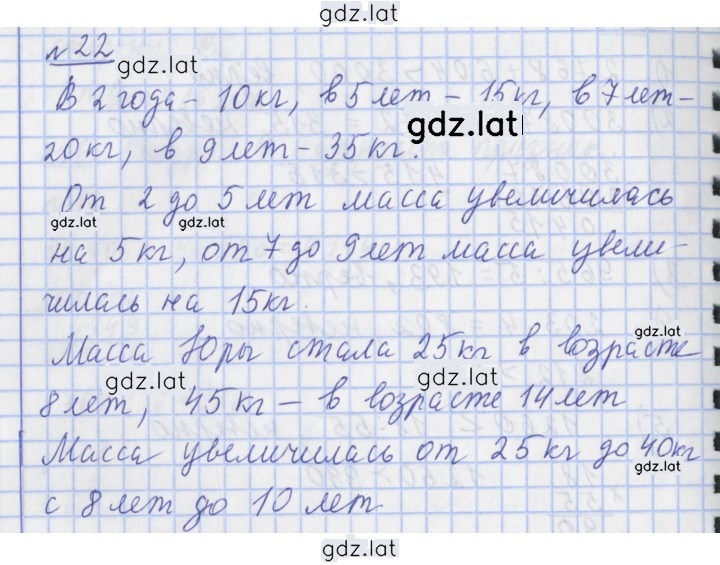 gdz.lat
№22
gdz.lat
В 2 года - 10кг, в 5 лет - 15кг, в 7 лет -
gdz.lat
20кг, в 9 лет - 35кг.
От 2 до 5 лет масса увеличилась
gdz.lat gdz.lat
на 5кг, от 7 до 9 лет масса увели-
чилась на 15кг.
gdz.lat
Масса Юры стала 25кг в возрасте
gdz.lat gdz.lat
8 лет, 45кг - в возрасте 14 лет
Масса увеличилась от 25кг до 40кг
gdz.lat
с 8 лет до 10 лет
gdz.lat
gdz.lat